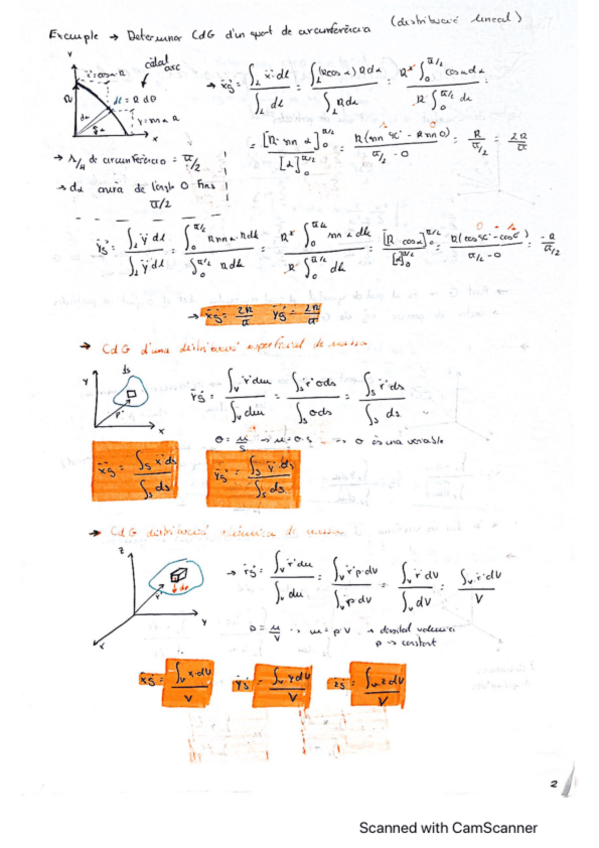 Exemple → Determinar CdG d'un quart de circumferència (distribució lineal)
y
x = cosα · R
càlcul arc
R
dl = R dθ
dα
y = sinα R
x
x⃗g = ∫_L x⃗·dl / ∫_L dl = ∫_L (R cosα) R dα / ∫_L R dα = R² ∫_0^{π/2} cosα dα / R ∫_0^{π/2} dα =
= [R · sinα]_0^{π/2} / [α]_0^{π/2} = R (sin 90° - R sin 0) / π/2 - 0 = R / π/2 = 2R / π
→ 1/4 de circumferència = π/2
→ dα anirà de l'angle 0 fins π/2
y⃗g = ∫_L y⃗ dl / ∫_L y⃗ dl = ∫_0^{π/2} R sinα · R dα / ∫_0^{π/2} R dα = R² ∫_0^{π/2} sinα dα / R ∫_0^{π/2} dα = [R cosα]_0^{π/2} / [α]_0^{π/2} = R (cos 90° - cos 0°) / π/2 - 0 = -R / π/2
→ x⃗g = 2R / π y⃗g = 2R / π
→ CdG d'una distribució superficial de massa
y
ds
r⃗
x
r⃗g = ∫_V r⃗ dm / ∫_V dm = ∫_S r⃗ σds / ∫_S σds = ∫_S r⃗ ds / ∫_S ds
σ = m/S → m = σ·S → σ és una variable
x⃗g = ∫_S x⃗ ds / ∫_S ds
y⃗g = ∫_S y⃗ ds / ∫_S ds
→ CdG distribució volúmica de massa
z
dv
r⃗
y
x
→ r⃗g = ∫_V r⃗ dm / ∫_V dm = ∫_V r⃗ ρ dV / ∫_V ρ dV = ∫_V r⃗ dV / ∫_V dV = ∫_V r⃗ dV / V
ρ = m/V → m = ρ·V → densitat volúmica
ρ → constant
x⃗g = ∫_V x dV / V
y⃗g = ∫_V y dV / V
z⃗g = ∫_V z dV / V
2
Scanned with CamScanner